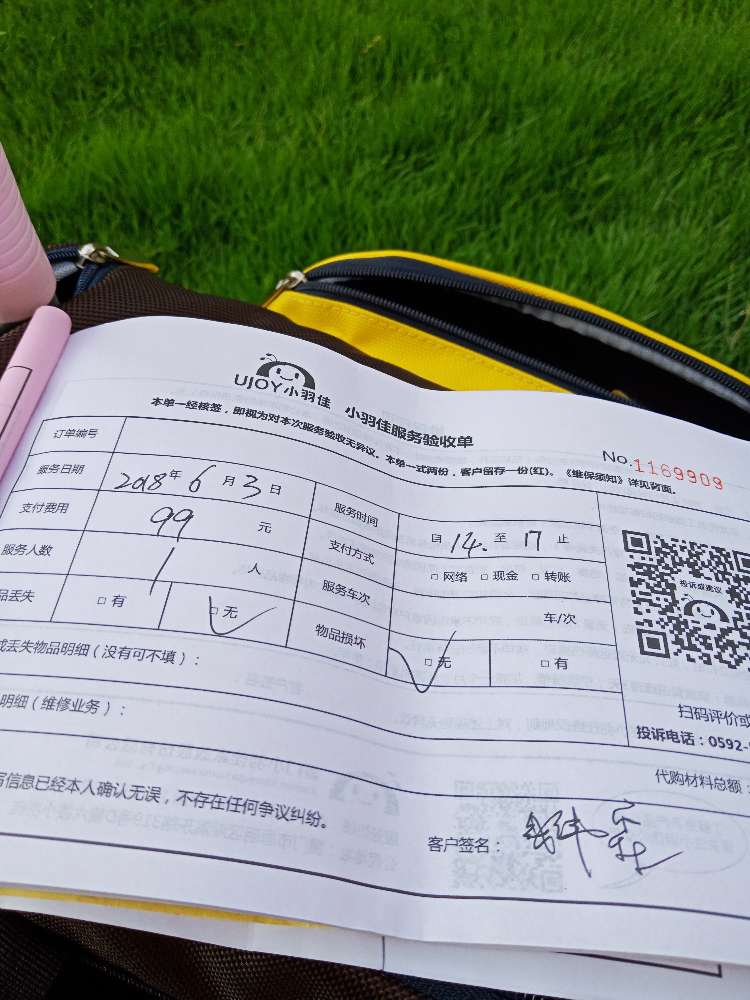 UJOY小羽佳 小羽佳服务验收单
本单一经核签，即视为对本次服务验收无异议。本单一式两份，客户留存一份(红)。《维保须知》详见背面。
No.1169909
订单编号
服务日期 2018年6月3日 服务时间 自14.至17止
支付费用 99元 支付方式 □网络 □现金 □转账
服务人数 1人 服务车次 车/次
品丢失 □有 □无 物品损坏 □无 □有
投诉或建议
或丢失物品明细（没有可不填）：
扫码评价或
明细（维修业务）：
投诉电话：0592-
代购材料总额：
写信息已经本人确认无误，不存在任何争议纠纷。
客户签名：